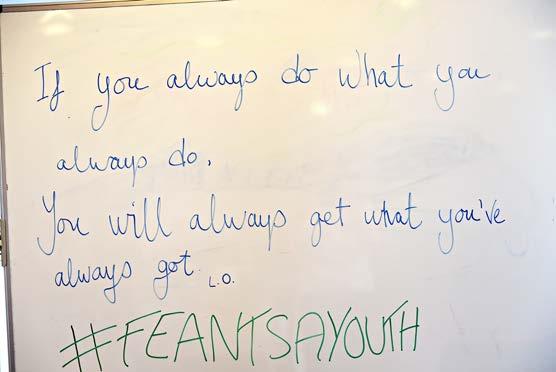 If you always do what you
always do.
You will always get what you've
always got. L.O.
#FEANTSAYOUTH